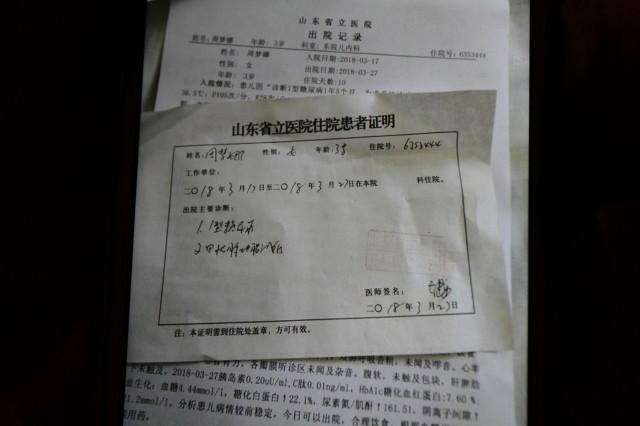 山东省立医院
出院记录
姓名:周梦娜 年龄:3岁 科室:东院儿内科 住院号:6353444
姓名:周梦娜 入院日期:2018-03-17
性别:女 出院日期:2018-03-27
年龄:3岁 住院天数:10
入院情况:患儿因"诊断1型糖尿病1年5个月
36.5℃,P105次/分,R26次/分
山东省立医院住院患者证明
姓名:周梦娜 性别:女 年龄:3岁 住院号:6353444
工作单位:
二〇18年3月17日至二〇18年3月27日在本院 科住院。
出院主要诊断:
1. 1型糖尿病
2
医师签名:
二〇18年3月27日
注:本证明需到住院处盖章,方可有效。
各瓣膜听诊区未闻及杂音。腹软,未触及包块,肝脾肋
下未触及。2018-03-27胰岛素0.20uU/ml,C肽0.01ng/ml,HbA1c糖化血红蛋白:7.60%
血生化:血糖4.44mmol/l,糖化白蛋白↑22.1%,尿素氮/肌酐↑161.51,阴离子间隙↑
21.2mmol/l,分析患儿病情较前稳定,今日可以出院,合理饮食,
用药。